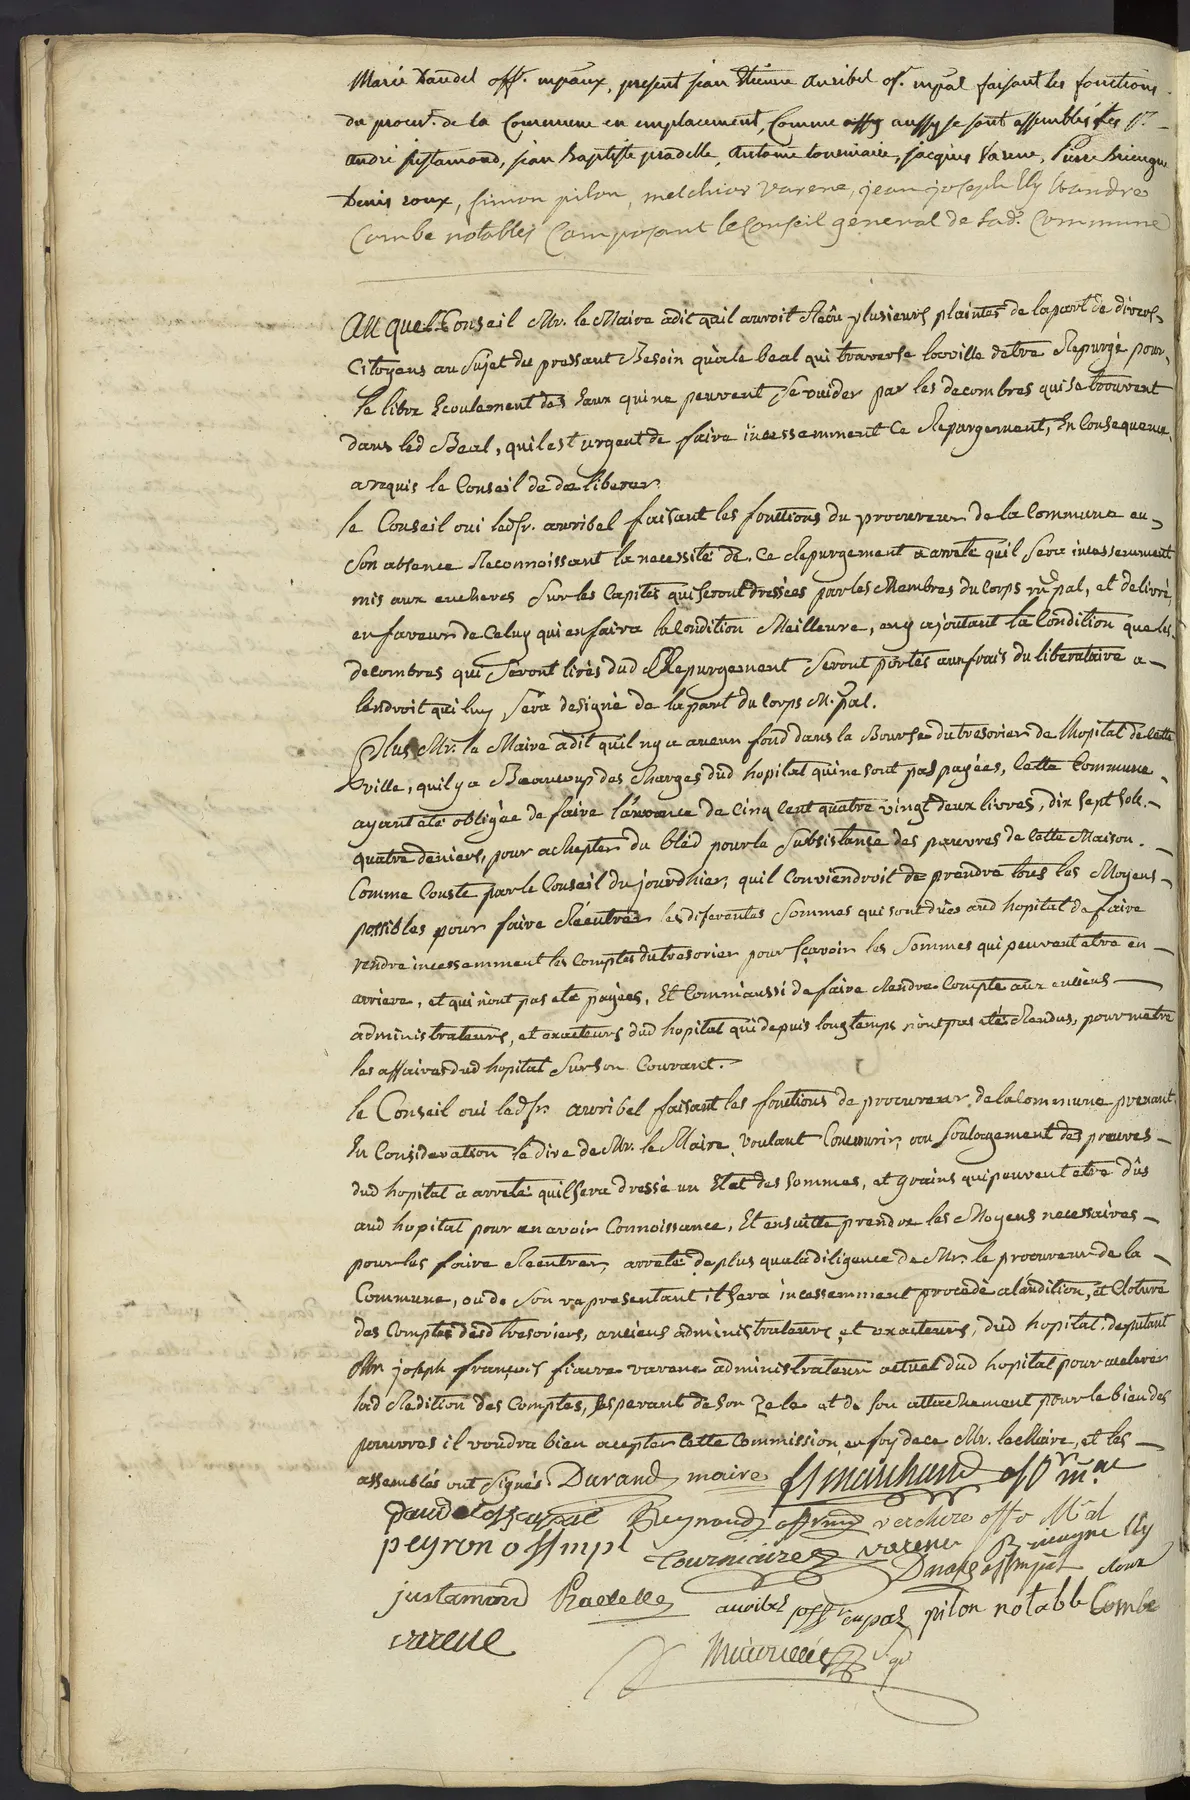 Marie Daudel off. mpaux, present jean Etienne auribel of. mpal faisant les fonctions
du procur. de la Commune en emplacement, Comme aussy se sont assemblés les Srs
andré justamond, jean baptiste pradelle, antoine tourniaire, jacques Varene, Pierre bricugne
Denis roux, simon pilon, melchior varene, jean joseph Ely & andre
Combe notables Composant le Conseil général de lad. Commune
Auquel Conseil Mr. le Maire a dit quil auroit Reçu plusieurs plaintes de la part de divers
Citoyens au sujet du pressant Besoin qua le beal qui traverse la ville detre Repurgé pour
le libre Ecoulement des Eaux qui ne peuvent se vuider par les decombres qui se trouvent
dans led Beal, quil est urgent de faire incessemment Ce Repurgement, En Consequence,
a requis le Conseil de deliberer.
le Conseil oui ledsr. auribel faisant les fonctions du procureur de la Commune en
Son absence Reconnoissant la necessité de Ce Repurgement a arreté quil Sera incessemment
mis aux encheres Sur les Capites qui seront dressées par les Membres du Corps mpal, et delivré,
en faveur de Celuy qui en faira la Condition Meilleure, en y ajoutant la Condition que les
decombres qui Seront tirés dud Repurgement Seront portés aux frais du liberataire a
lendroit qui luy Sera designé de la part du Corps M.pal.
Plus Mr. le Maire a dit quil ny a aucun fond dans la Bourse du tresorier de l'hopital de Cette
ville, quil y a Beaucoup des Charges dud hopital qui ne sont pas payées, Cette Commune
ayant été obligée de faire l'avance de Cinq Cent quatre vingt deux livres, dix sept sols
quatre deniers, pour achepter du bléd pour la Subsistance des pauvres de Cette Maison.
Comme Conste par le Conseil du jourdhier, quil Conviendroit de prendre tous les Moyens
possibles pour faire Réentrer les diferentes Sommes qui sont düés aud hopital de faire
rendre incessemment les Comptes du tresorier pour sçavoir les Sommes qui peuvent etre en
arriere, et qui n'ont pas eté payées, Et Comm'aussi de faire Rendre Compte aux enciens
administrateurs, et exacteurs dud hopital qui depuis longtemps n'ont pas etés Rendus, pour metre
les affaires dud hopital Sur son Courant.
le Conseil oui ledsr. auribel faisant les fonctions de procureur de la Commune prenant
En Consideration le dire de Mr. le Maire, Voulant Concourir, au Soulagement des pauvres
dud hopital a arreté quil sera dressé un Etat des Sommes, et grains qui peuvent etre dûs
aud hopital pour en avoir Connoissance, Et ensuitte prendre les Moyens necessaires
pour les faire Réentrer, arreté de plus qua la diligence de Mr. le procureur de la
Commune, ou de Son representant il Sera incessemment procedé a laudition, et Cloture
des Comptes desd tresoriers, anciens administrateurs, et exacteurs, dud hopital, deputant
Mr joseph françois fiacre varene administrateur actuel dud hopital pour acelerer
lad Redition des Comptes, Esperant de Son Zele et de Son attachement pour le bien des
pauvres il voudra bien acepter Cette Commission, en foy de ce Mr. le Maire, et les
assemblés ont Signés Durand maire f marchand offr. m.al
Reynaud verchere off. M.al
peyron off mpl Tourniaire varene Bricugne Ely
justamond Pradelle auribel off. mpal pilon notable Combe
varene